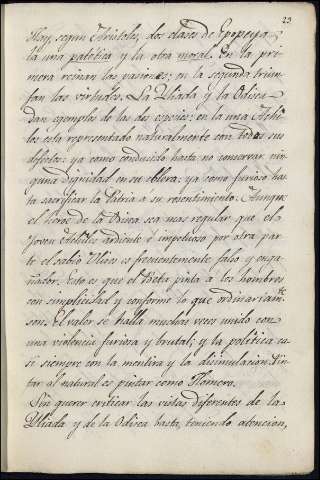 23
Hay, segun Aristoteles, dos clases de Epopeya
la una patetica y la otra moral. En la pri-
mera reinan las pasiones: en la segunda triun-
fan las virtudes. La Yliada y la Odisea
dan exemplos de las dos especies: en la una Achi-
les esta representado naturalmente con todos sus
defectos: ya como conducido hasta no conservar nin-
guna dignidad en su colera: ya como furioso has-
ta sacrificar la Patria a su resentimiento. Aunque
el heroe de la Odisea sea mas regular que el
joven Achiles ardiente é impetuoso por otra par-
te el sabio Ulises es frecuentemente falso y enga-
ñador. Esto es que el Poeta pinta a los hombres
con simplicidad y conforme lo que ordinariamte
son. El valor se halla muchas veces unido con
una violencia furiosa y brutal; y la politica ca-
si siempre con la mentira y la disimulacion. Pin-
tar al natural es pintar como Homero.
Sin querer criticar las vistas diferentes de la
Yliada y de la Odisea basta, teniendo atencion,